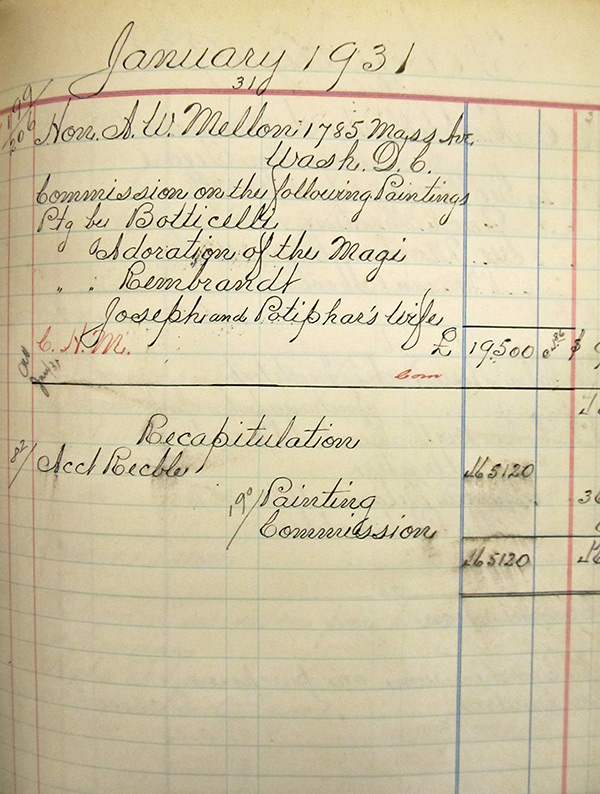 January 1931
31
199/
206
Hon. A. W. Mellon 1785 Mass Av.
Wash. D. C.
Commission on the following Paintings
Ptg by Botticelli
Adoration of the Magi
" " Rembrandt
Joseph and Potiphar's Wife
C. H. M. £ 19500 $ 9
Jan 31
Com
Recapitulation
82/ Acct Recble 165120
190/ Painting 36
Commission
165120 16